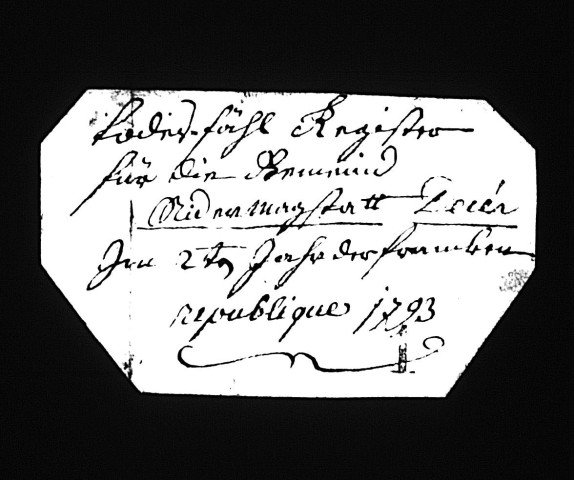 todes-fähl Register
für die Gemeind
Nidermagstatt
Im 2tn Jahr der franken
republique 1793